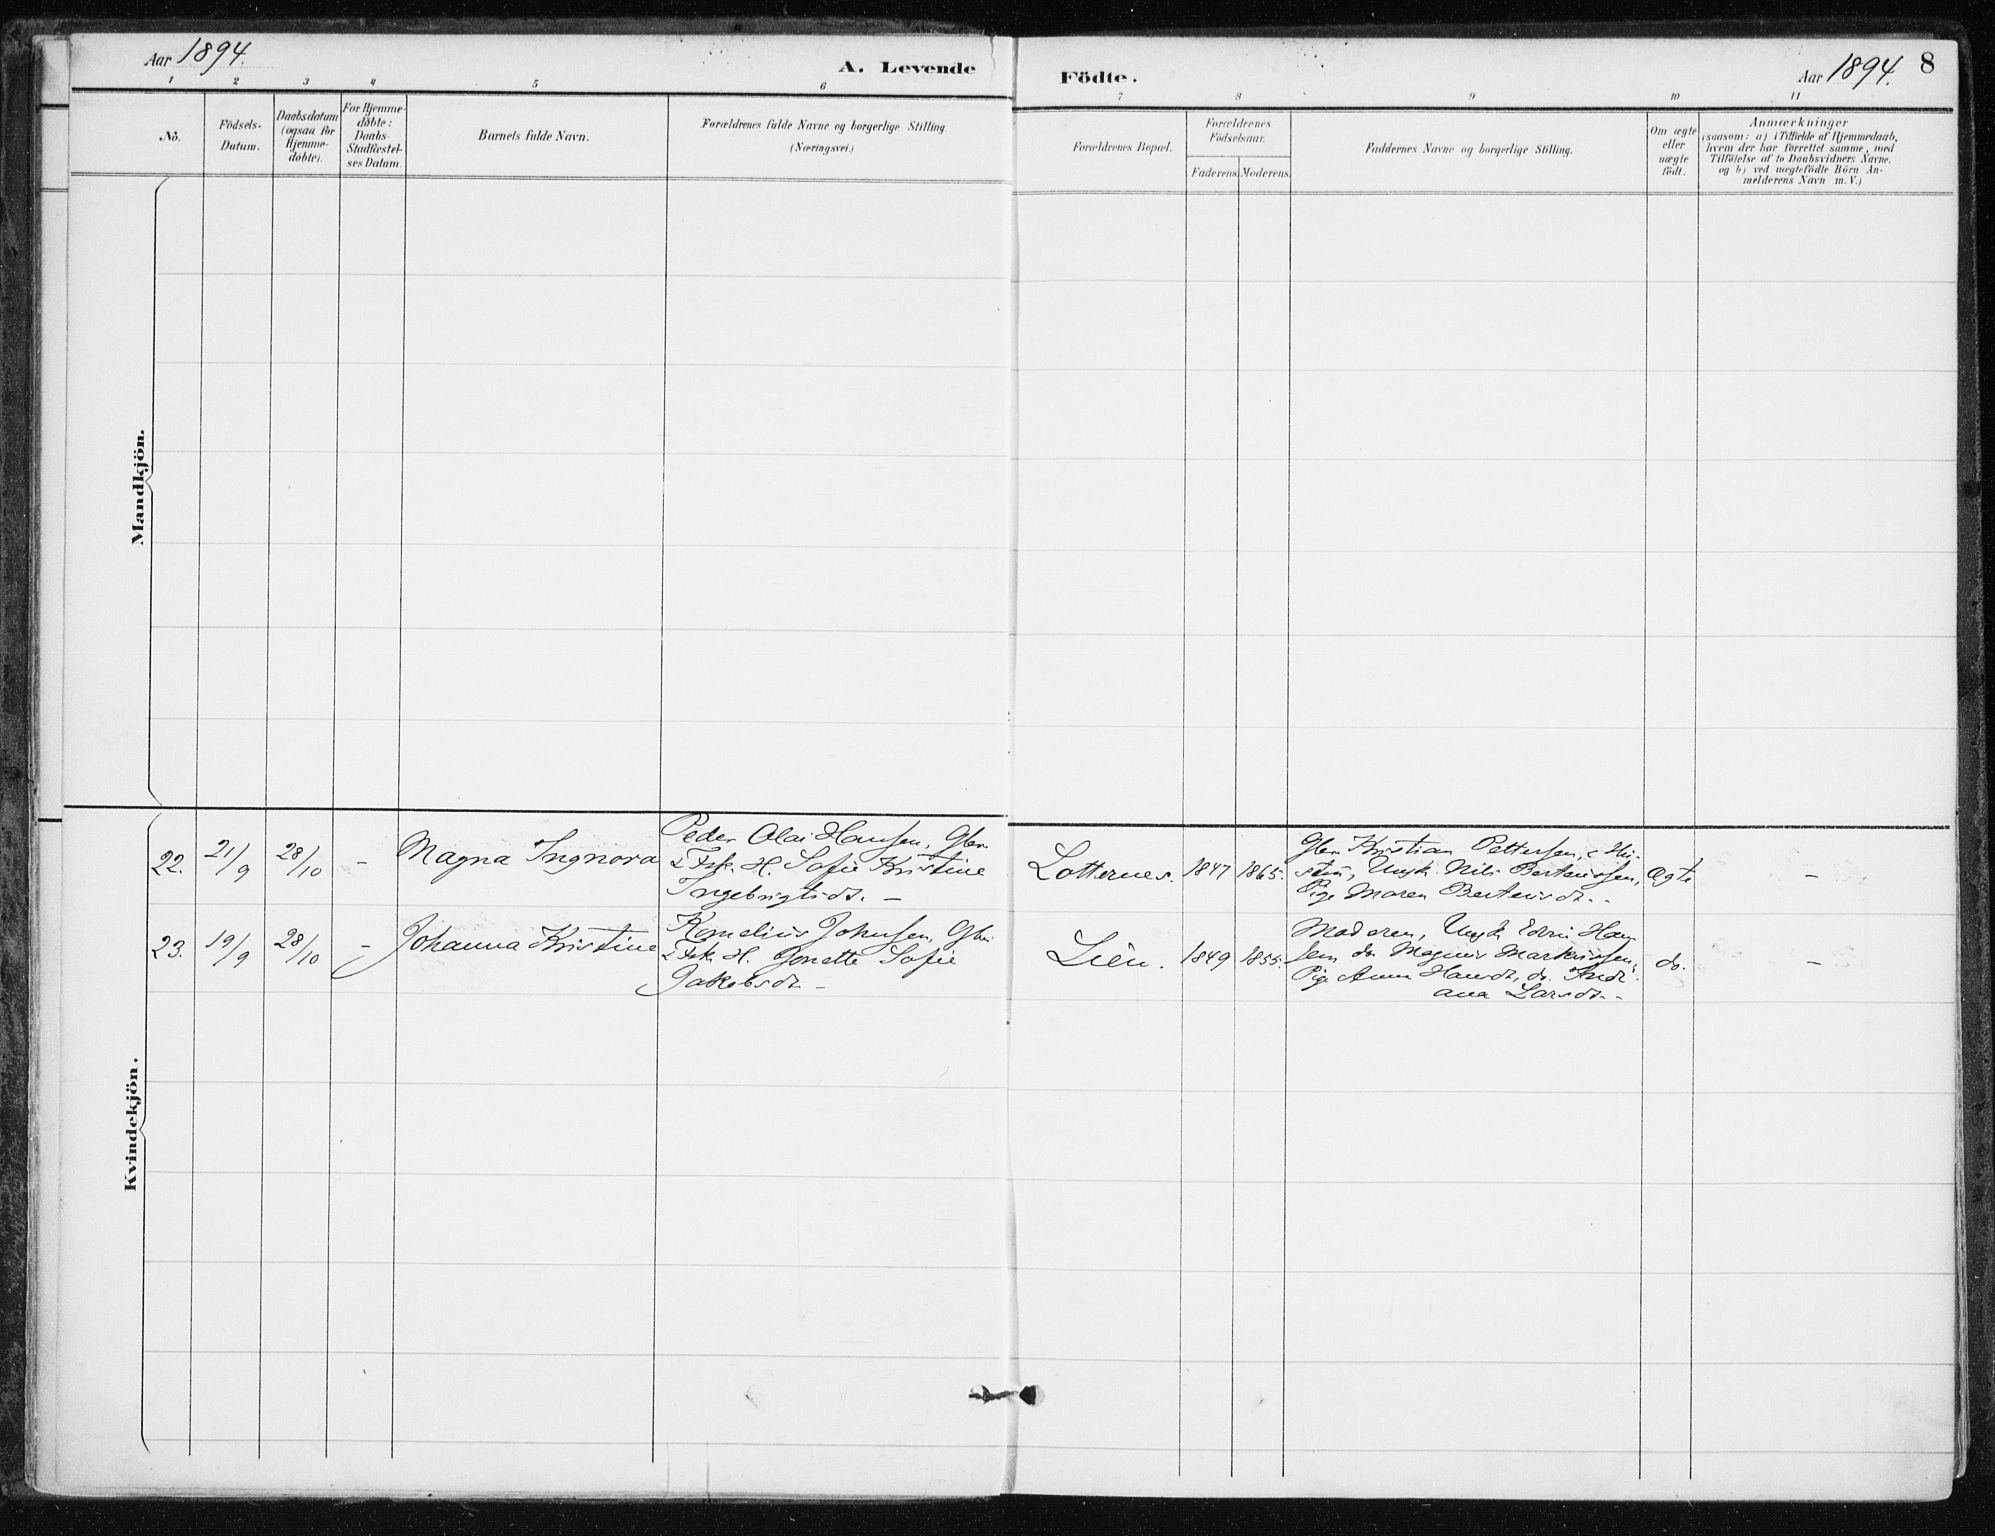 Aar 1894.
A. Levende
Födte.
Aar 1894.
8
1 2 3 4 5 6
7 8 9 10 11
No.
Födsels-
Datum.
Daabsdatum
(ogsaa for
Hjemme-
döbte).
For Hjemme-
döbte:
Daabs-
Stadfæstel-
ses Datum.
Barnets fulde Navn.
Forældrenes fulde Navne og borgerlige Stilling.
(Næringsvei.)
Forældrenes Bopæl.
Forældrenes
Födselsaar.
Faderens. Moderens.
Faddernes Navne og borgerlige Stilling.
Om ægte
eller
uægte
födt.
Anmærkninger
(saasom: a) i Tilfælde af Hjemmedaab,
hvem der har forrettet samme, med
Tilföielse af to Daabsvidners Navne.
og b) ved uægtefödte Börn An-
melderens Navn m.V.)
Mandkjön.
Kvindekjön.
22. 21/9 28/10 - Magna Ingnora
Peder Olai Hansen, Gbr.
& Fsk. H. Sofie Kristine
Ingebrigtsdt. -
Lotternes. 1847 1865.
Gbr Kristian Pettersen,
Ungk. Nils Berteussen,
Pige Maren Berteusdt. -
Ægte -
23. 19/9 28/10 - Johanna Kristine
Kornelius Johnsen, Gbr.
& Fsk. H. Jonette Sofie
Jakobsdt -
Lien. 1849 1855.
Moderen, Ungk. Edvin Han-
sen do Magnus Markussen,
Pige Anna Hansdt, do. Indi-
ana Larsdt. -
do. -